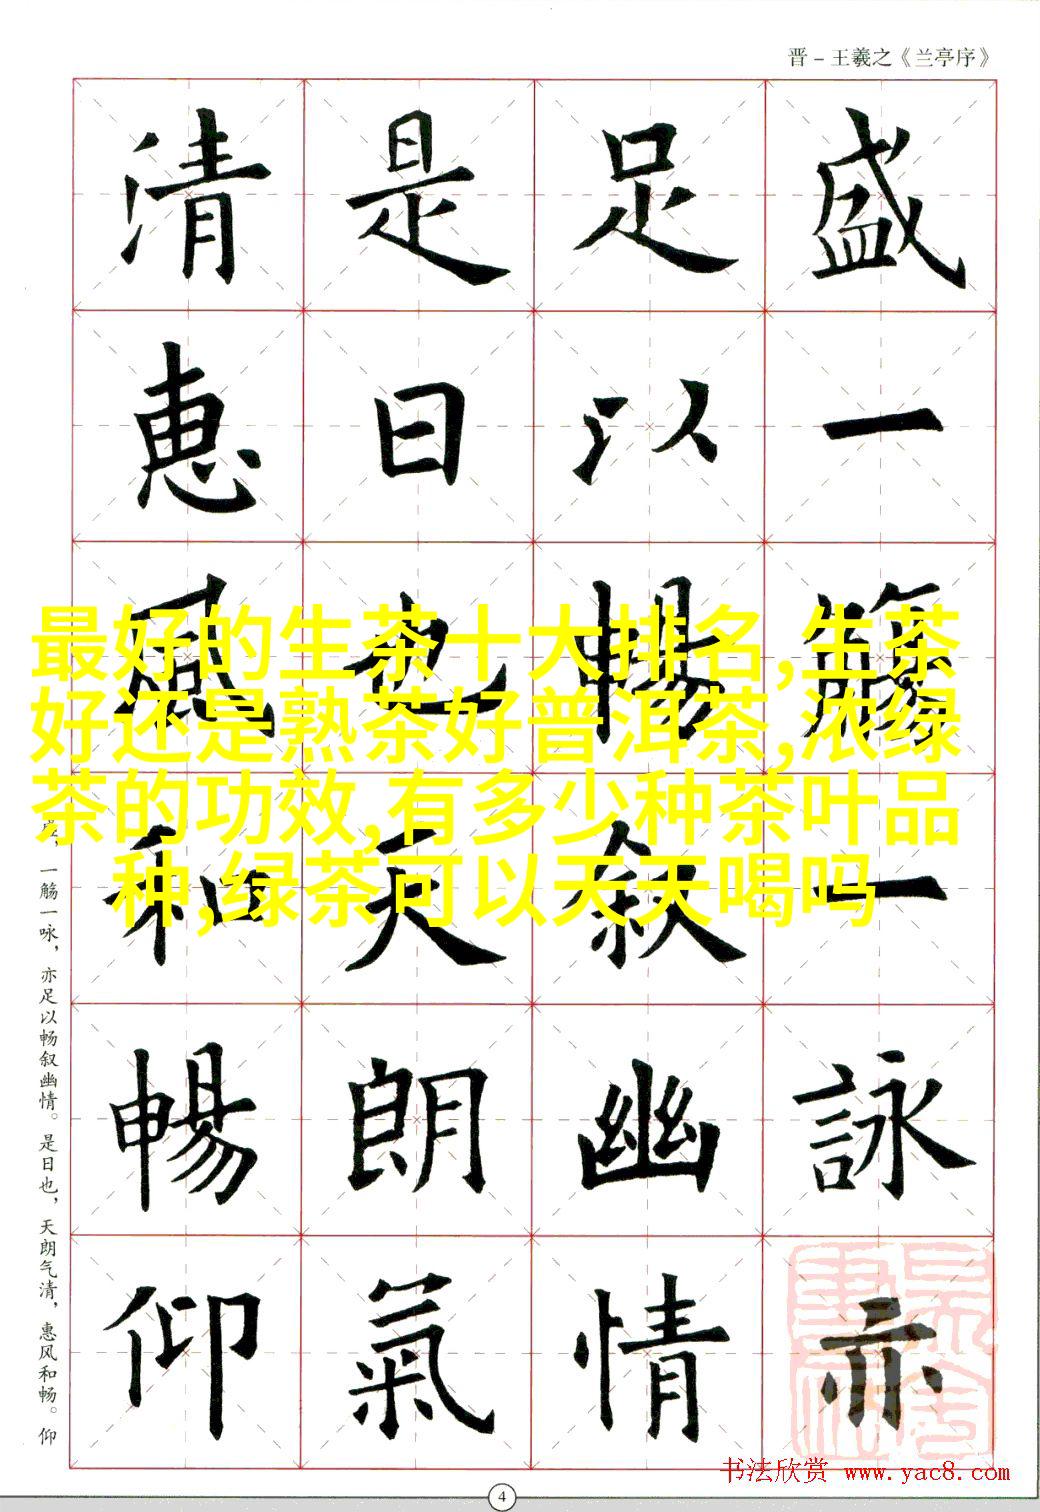 晋－王羲之《兰亭序》
盛一觴一詠亦
足以暢叙幽情
是日也天朗氣
清惠風和暢仰
最好的生茶十大排名,生茶
好还是熟茶好普洱茶,浓绿
茶的功效,有多少种茶叶品
种,绿茶可以天天喝吗
盛，一觞一咏，亦足以畅叙幽情。是日也，天朗气清，惠风和畅。仰
书法欣赏 www.yac8.com
4